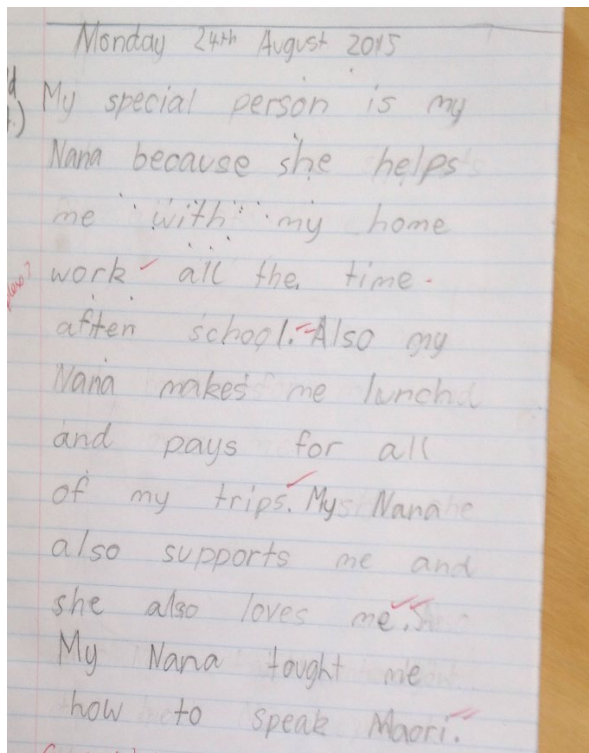 Monday 24th August 2015
My special person is my
Nana because she helps
me with my home
work all the time.
aften school. Also my
Nana makes me lunch
and pays for all
of my trips. My Nana
also supports me and
she also loves me.
My Nana tought me
how to speak Maori.